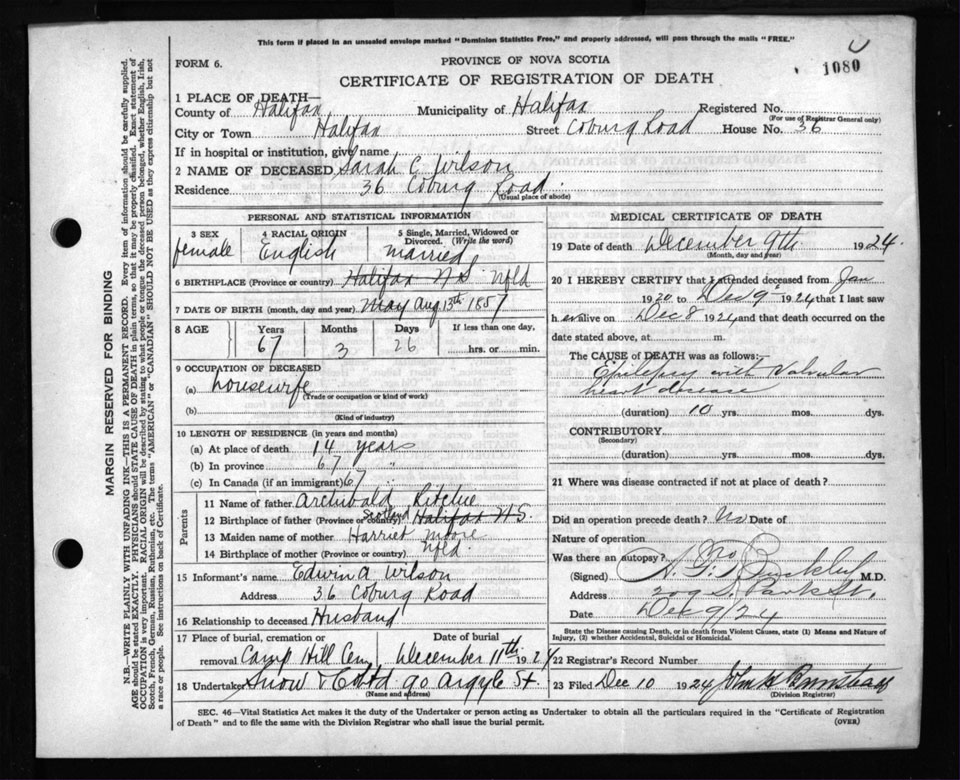 This form if placed in an unsealed envelope marked "Dominion Statistics Free," and properly addressed, will pass through the mails "FREE."
FORM 6.
PROVINCE OF NOVA SCOTIA
1080
CERTIFICATE OF REGISTRATION OF DEATH
1 PLACE OF DEATH—
County of Halifax Municipality of Halifax Registered No.
(For use of Registrar General only)
City or Town Halifax Street Coburg Road House No. 36
If in hospital or institution, give name
2 NAME OF DECEASED Sarah C Wilson
Residence 36 Coburg Road.
(Usual place of abode)
PERSONAL AND STATISTICAL INFORMATION
3 SEX 4 RACIAL ORIGIN 5 Single, Married, Widowed or Divorced. (Write the word)
female English married
6 BIRTHPLACE (Province or country) Halifax N S Nfld
7 DATE OF BIRTH (month, day and year) May Aug 13th 1857
8 AGE Years Months Days If less than one day,
67 3 26 hrs. or min.
9 OCCUPATION OF DECEASED
(a) housewife
(Trade or occupation or kind of work)
(b)
(Kind of industry)
10 LENGTH OF RESIDENCE (in years and months)
(a) At place of death 14 years
(b) In province 67 "
(c) In Canada (if an immigrant) 67
Parents
11 Name of father Archibald Ritchie
12 Birthplace of father (Province or country) Scotland Halifax N.S.
13 Maiden name of mother Harriet Moore
14 Birthplace of mother (Province or country) Nfld.
15 Informant's name Edwin A Wilson
Address 36 Coburg Road
16 Relationship to deceased Husband
17 Place of burial, cremation or removal Date of burial
Camp Hill Cem, December 11th 1924
18 Undertaker Snow & Co Ltd 90 Argyle St.
(Name and address)
MEDICAL CERTIFICATE OF DEATH
19 Date of death December 9th 1924.
(Month, day and year)
20 I HEREBY CERTIFY that I attended deceased from Jan
1920 to Dec 9 1924 that I last saw
h er alive on Dec 8 1924 and that death occurred on the
date stated above, at m.
The CAUSE of DEATH was as follows:
Epilepsy with Valvular
heart disease
(duration) 10 yrs. mos. dys.
CONTRIBUTORY
(Secondary)
(duration) yrs. mos. dys.
21 Where was disease contracted if not at place of death?
Did an operation precede death? No Date of
Nature of operation
Was there an autopsy? No
(Signed) M.D.
Address 209 S. Park St.
Date Dec 9/24
State the Disease causing Death, or in death from Violent Causes, state (1) Means and Nature of
Injury, (2) whether Accidental, Suicidal or Homicidal.
22 Registrar's Record Number
23 Filed Dec 10 1924 John
(Division Registrar)
SEC. 46—Vital Statistics Act makes it the duty of the Undertaker or person acting as Undertaker to obtain all the particulars required in the "Certificate of Registration
of Death" and to file the same with the Division Registrar who shall issue the burial permit.
(OVER)
MARGIN RESERVED FOR BINDING
N.B.—WRITE PLAINLY WITH UNFADING INK—THIS IS A PERMANENT RECORD. Every item of information should be carefully supplied.
AGE should be stated EXACTLY. PHYSICIANS should STATE CAUSE OF DEATH in plain terms, so that it may be properly classified. Exact statement of
OCCUPATION is very important. RACIAL ORIGIN will be described by stating to what people or tongue the deceased person belonged, whether English, Irish,
Scotch, French, German, Russian, Ruthenian, etc. The terms "AMERICAN" or "CANADIAN" SHOULD NOT BE USED as they express citizenship but not
a race or people. See instructions on back of Certificate.